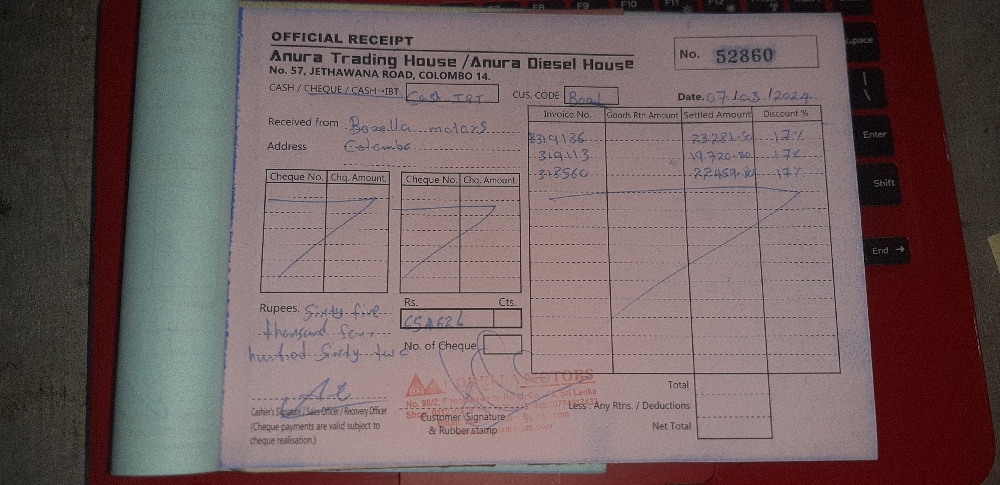 OFFICIAL RECEIPT
Anura Trading House / Anura Diesel House
No. 57, JETHAWANA ROAD, COLOMBO 14.
No. 52860
CASH / CHEQUE / CASH - IBT
CUS. CODE
Date. 07/03/2024
Received from motors
Address Colombo
Invoice No. Goods Rtn Amount Settled Amount Discount %
319136 23,281.50 17%
319113 19,720.80 17%
318560 22459.80 17%
Cheque No. Chq. Amount. Cheque No. Chq. Amount.
Rs. Cts.
Rupees. Sixty five
thousand four
hundred Sixty two
No. of Cheque
Cashier's Signature / Sales Officer / Recovery Officer
(Cheque payments are valid subject to
cheque realisation.)
MOTORS
Sri Lanka
Customer Signature
& Rubber stamp
Total
Less : Any Rtns. / Deductions
Net Total
F8 F9 F10 F11
Enter
Shift
End →